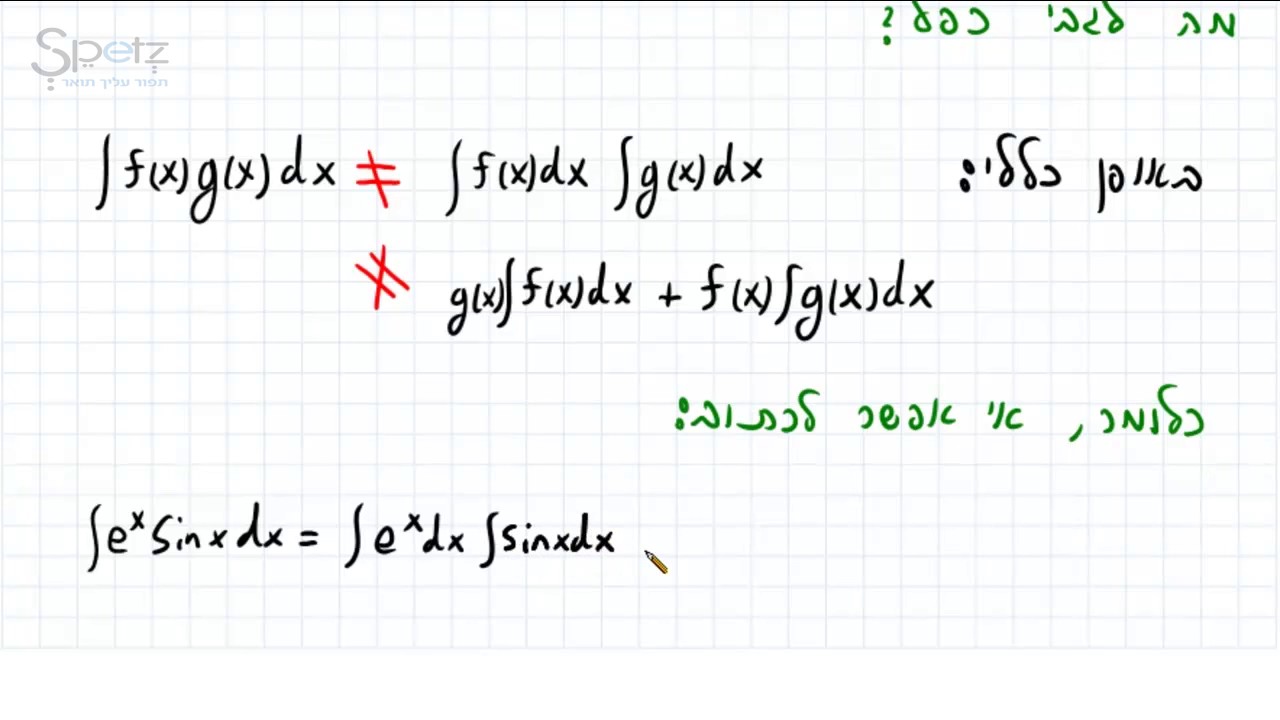 Spetz
תפור עליך תואר
מה לגבי כפל?
באופן כללי: ∫f(x)g(x)dx ≠ ∫f(x)dx ∫g(x)dx
≠ g(x)∫f(x)dx + f(x)∫g(x)dx
כלומר, אי אפשר לכתוב:
∫eˣ sinx dx = ∫eˣdx ∫sinxdx